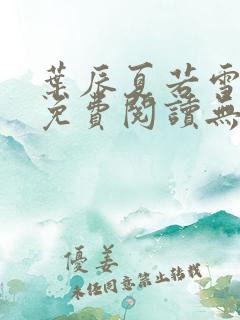 葉辰夏若雪
免費閱讀無
優姜
未經同意禁止轉載